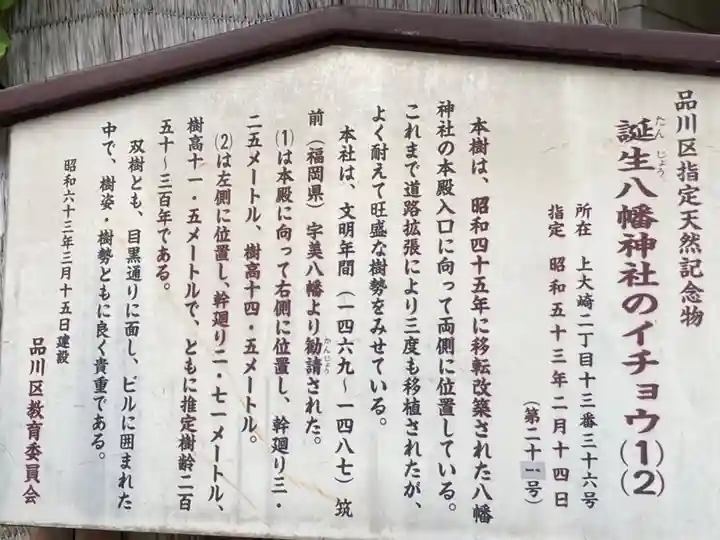 品川区指定天然記念物
誕生八幡神社のイチョウ(1)(2)
たんじょう
所在 上大崎二丁目十三番三十六号
指定 昭和五十三年二月十四日
(第二十一号)
本樹は、昭和四十五年に移転改築された八幡
神社の本殿入口に向って両側に位置している。
これまで道路拡張により三度も移植されたが、
よく耐えて旺盛な樹勢をみせている。
本社は、文明年間(一四六九~一四八七)筑
前(福岡県)宇美八幡より勧請された。
かんじょう
(1)は本殿に向って右側に位置し、幹廻り三・
二五メートル、樹高十四・五メートル。
(2)は左側に位置し、幹廻り二・七一メートル、
樹高十一・五メートルで、ともに推定樹齢二百
五十~三百年である。
双樹とも、目黒通りに面し、ビルに囲まれた
中で、樹姿・樹勢ともに良く貴重である。
昭和六十三年三月十五日建設
品川区教育委員会